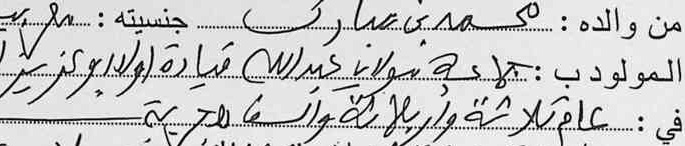 من والده : محمد بن مبارك جنسيته : مغربية
المولود ب : جماعة مولاي عبد الله قيادة اولاد بوعزيز
في : عام ثلاثة وأربعة وألف هجرية